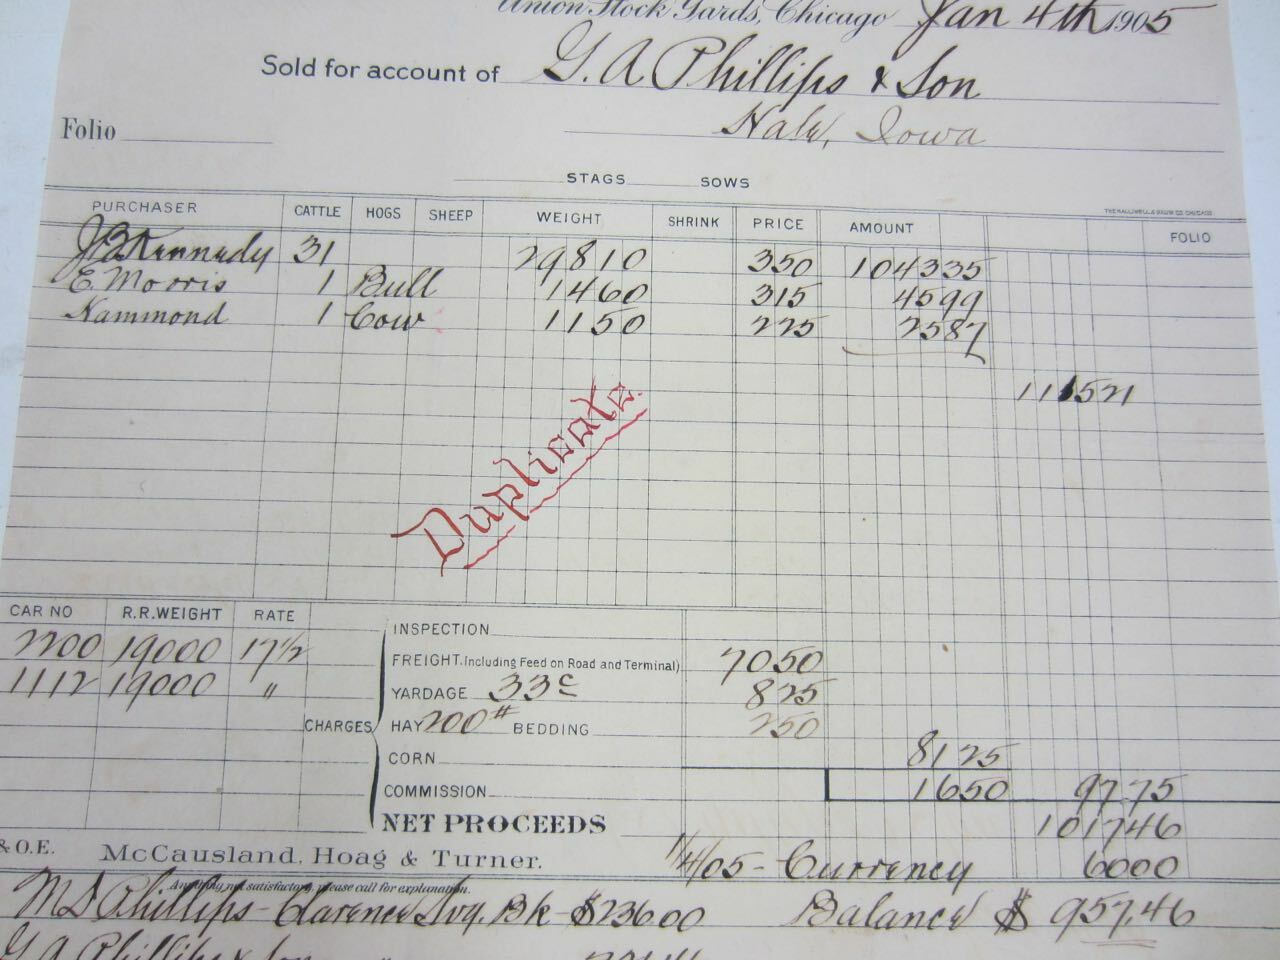 Union Stock Yards, Chicago Jan 4th 1905
Sold for account of G. A. Phillips & Son
Folio
Hale, Iowa
STAGS SOWS
THE HALLIWELL & BAUM CO. CHICAGO
PURCHASER CATTLE HOGS SHEEP WEIGHT SHRINK PRICE AMOUNT FOLIO
J B Kennedy 31 29810 350 104335
E. Morris 1 Bull 1460 315 4599
Hammond 1 Cow 1150 225 2587
111521
Duplicate.
CAR NO R.R.WEIGHT RATE
INSPECTION
2200 19000 17½
FREIGHT. (Including Feed on Road and Terminal) 7050
1112 19000 "
YARDAGE 33c 825
CHARGES HAY 200# BEDDING 250
CORN 8125
COMMISSION 1650 9775
NET PROCEEDS 101746
& O.E. McCausland, Hoag & Turner. 1/4/05 - Currency 6000
Anything not satisfactory, please call for explanation.
M D Phillips - Clarence Svg. Bk - $236.00 Balance $ 957.46
G A Phillips & Son "